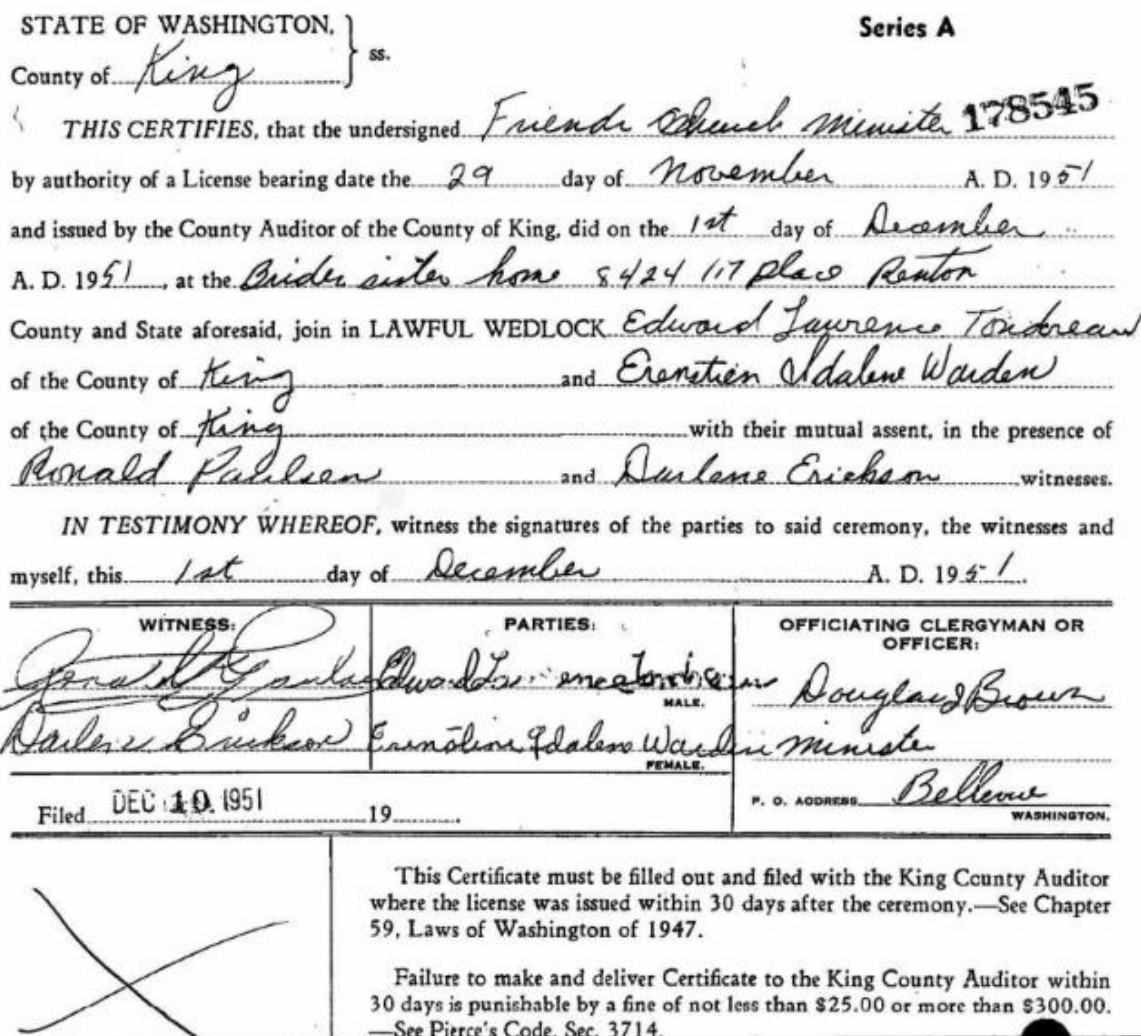 STATE OF WASHINGTON,
County of King
ss.
Series A
THIS CERTIFIES, that the undersigned Friends Church minister 178545
by authority of a License bearing date the 29 day of November A. D. 1951
and issued by the County Auditor of the County of King, did on the 1st day of December
A. D. 1951, at the Brides sister home 8424 117 place Renton
County and State aforesaid, join in LAWFUL WEDLOCK Edward Lawrence Tondreau
of the County of King and Erenstien Idalene Warden
of the County of King with their mutual assent, in the presence of
Ronald Paulsen and Darlene Erickson witnesses.
IN TESTIMONY WHEREOF, witness the signatures of the parties to said ceremony, the witnesses and
myself, this 1st day of December A. D. 1951.
WITNESS:
Darlene Erickson
PARTIES:
Edward Lawrence
MALE.
Idalene Warden
FEMALE.
OFFICIATING CLERGYMAN OR
OFFICER:
Douglas J Brown
minister
P. O. ADDRESS Bellevue
WASHINGTON.
Filed DEC 10 1951 19
This Certificate must be filled out and filed with the King County Auditor
where the license was issued within 30 days after the ceremony.—See Chapter
59, Laws of Washington of 1947.
Failure to make and deliver Certificate to the King County Auditor within
30 days is punishable by a fine of not less than $25.00 or more than $300.00.
—See Pierce's Code, Sec. 3714.